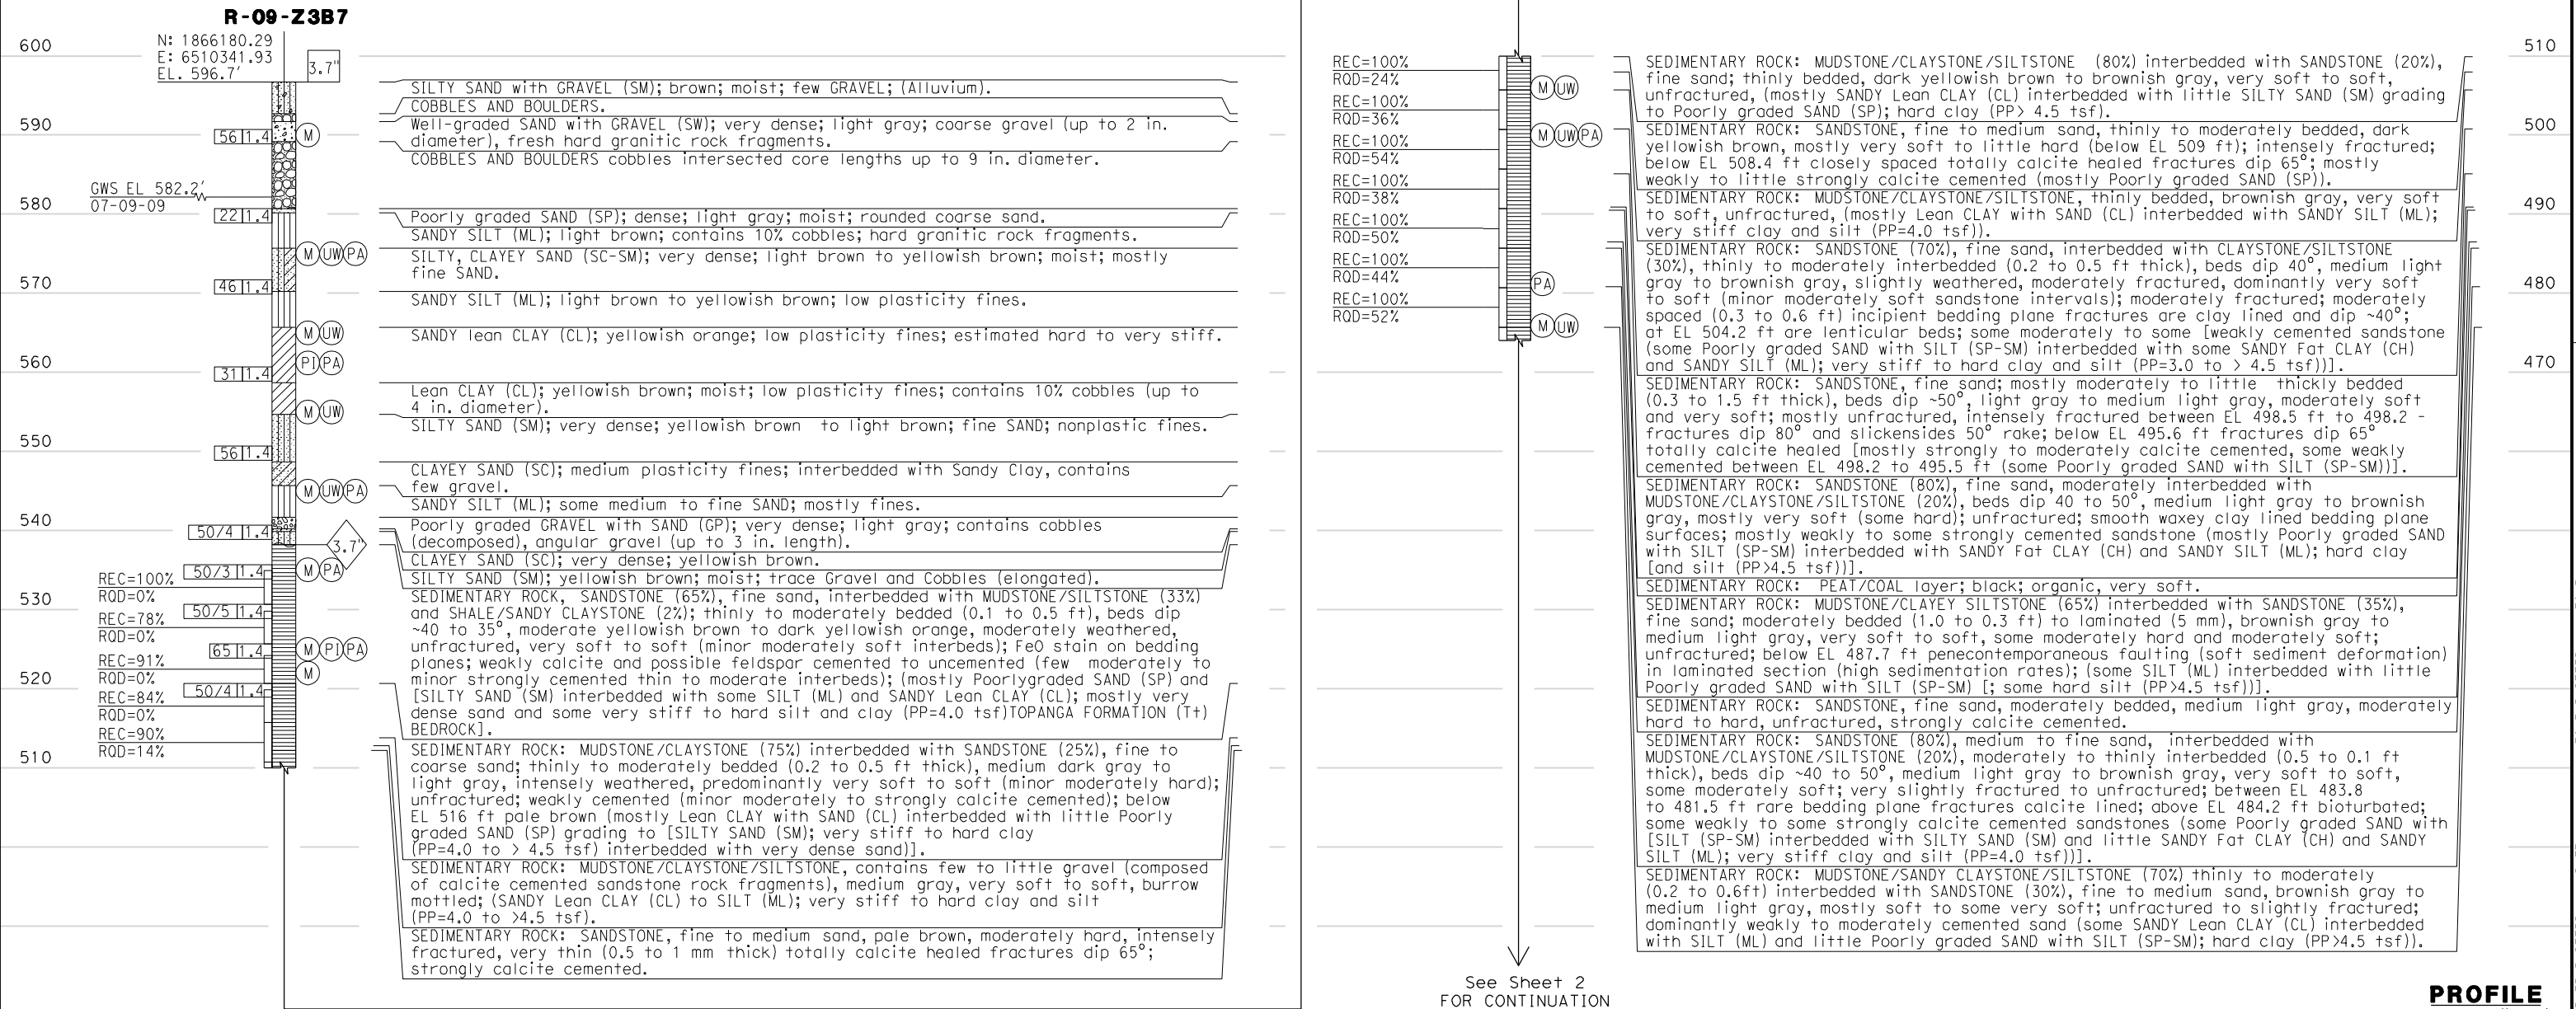 R-09-Z3B7
N: 1866180.29
E: 6510341.93
EL. 596.7'
3.7"
600
590
580
570
560
550
540
530
520
510
56 1.4
M
GWS EL 582.2'
07-09-09
22 1.4
M UW PA
46 1.4
M UW
PI PA
31 1.4
M UW
56 1.4
M UW PA
50/4 1.4
3.7"
50/3 1.4
M PA
REC=100%
RQD=0%
50/5 1.4
REC=78%
RQD=0%
65 1.4
M PI PA
REC=91%
RQD=0%
M
50/4 1.4
REC=84%
RQD=0%
REC=90%
RQD=14%
SILTY SAND with GRAVEL (SM); brown; moist; few GRAVEL; (Alluvium).
COBBLES AND BOULDERS.
Well-graded SAND with GRAVEL (SW); very dense; light gray; coarse gravel (up to 2 in.
diameter), fresh hard granitic rock fragments.
COBBLES AND BOULDERS cobbles intersected core lengths up to 9 in. diameter.
Poorly graded SAND (SP); dense; light gray; moist; rounded coarse sand.
SANDY SILT (ML); light brown; contains 10% cobbles; hard granitic rock fragments.
SILTY, CLAYEY SAND (SC-SM); very dense; light brown to yellowish brown; moist; mostly
fine SAND.
SANDY SILT (ML); light brown to yellowish brown; low plasticity fines.
SANDY lean CLAY (CL); yellowish orange; low plasticity fines; estimated hard to very stiff.
Lean CLAY (CL); yellowish brown; moist; low plasticity fines; contains 10% cobbles (up to
4 in. diameter).
SILTY SAND (SM); very dense; yellowish brown  to light brown; fine SAND; nonplastic fines.
CLAYEY SAND (SC); medium plasticity fines; interbedded with Sandy Clay, contains
few gravel.
SANDY SILT (ML); some medium to fine SAND; mostly fines.
Poorly graded GRAVEL with SAND (GP); very dense; light gray; contains cobbles
(decomposed), angular gravel (up to 3 in. length).
CLAYEY SAND (SC); very dense; yellowish brown.
SILTY SAND (SM); yellowish brown; moist; trace Gravel and Cobbles (elongated).
SEDIMENTARY ROCK, SANDSTONE (65%), fine sand, interbedded with MUDSTONE/SILTSTONE (33%)
and SHALE/SANDY CLAYSTONE (2%); thinly to moderately bedded (0.1 to 0.5 ft), beds dip
~40 to 35°, moderate yellowish brown to dark yellowish orange, moderately weathered,
unfractured, very soft to soft (minor moderately soft interbeds); FeO stain on bedding
planes; weakly calcite and possible feldspar cemented to uncemented (few  moderately to
minor strongly cemented thin to moderate interbeds); (mostly Poorlygraded SAND (SP) and
[SILTY SAND (SM) interbedded with some SILT (ML) and SANDY Lean CLAY (CL); mostly very
dense sand and some very stiff to hard silt and clay (PP=4.0 tsf)TOPANGA FORMATION (Tt)
BEDROCK].
SEDIMENTARY ROCK: MUDSTONE/CLAYSTONE (75%) interbedded with SANDSTONE (25%), fine to
coarse sand; thinly to moderately bedded (0.2 to 0.5 ft thick), medium dark gray to
light gray, intensely weathered, predominantly very soft to soft (minor moderately hard);
unfractured; weakly cemented (minor moderately to strongly calcite cemented); below
EL 516 ft pale brown (mostly Lean CLAY with SAND (CL) interbedded with little Poorly
graded SAND (SP) grading to [SILTY SAND (SM); very stiff to hard clay
(PP=4.0 to > 4.5 tsf) interbedded with very dense sand)].
SEDIMENTARY ROCK: MUDSTONE/CLAYSTONE/SILTSTONE, contains few to little gravel (composed
of calcite cemented sandstone rock fragments), medium gray, very soft to soft, burrow
mottled; (SANDY Lean CLAY (CL) to SILT (ML); very stiff to hard clay and silt
(PP=4.0 to >4.5 tsf).
SEDIMENTARY ROCK: SANDSTONE, fine to medium sand, pale brown, moderately hard, intensely
fractured, very thin (0.5 to 1 mm thick) totally calcite healed fractures dip 65°;
strongly calcite cemented.
REC=100%
RQD=24%
REC=100%
RQD=36%
REC=100%
RQD=54%
REC=100%
RQD=38%
REC=100%
RQD=50%
REC=100%
RQD=44%
REC=100%
RQD=52%
M UW
M UW PA
PA
M UW
See Sheet 2
FOR CONTINUATION
SEDIMENTARY ROCK: MUDSTONE/CLAYSTONE/SILTSTONE  (80%) interbedded with SANDSTONE (20%),
fine sand; thinly bedded, dark yellowish brown to brownish gray, very soft to soft,
unfractured, (mostly SANDY Lean CLAY (CL) interbedded with little SILTY SAND (SM) grading
to Poorly graded SAND (SP); hard clay (PP> 4.5 tsf).
SEDIMENTARY ROCK: SANDSTONE, fine to medium sand, thinly to moderately bedded, dark
yellowish brown, mostly very soft to little hard (below EL 509 ft); intensely fractured;
below EL 508.4 ft closely spaced totally calcite healed fractures dip 65°; mostly
weakly to little strongly calcite cemented (mostly Poorly graded SAND (SP)).
SEDIMENTARY ROCK: MUDSTONE/CLAYSTONE/SILTSTONE, thinly bedded, brownish gray, very soft
to soft, unfractured, (mostly Lean CLAY with SAND (CL) interbedded with SANDY SILT (ML);
very stiff clay and silt (PP=4.0 tsf)).
SEDIMENTARY ROCK: SANDSTONE (70%), fine sand, interbedded with CLAYSTONE/SILTSTONE
(30%), thinly to moderately interbedded (0.2 to 0.5 ft thick), beds dip 40°, medium light
gray to brownish gray, slightly weathered, moderately fractured, dominantly very soft
to soft (minor moderately soft sandstone intervals); moderately fractured; moderately
spaced (0.3 to 0.6 ft) incipient bedding plane fractures are clay lined and dip ~40°;
at EL 504.2 ft are lenticular beds; some moderately to some [weakly cemented sandstone
(some Poorly graded SAND with SILT (SP-SM) interbedded with some SANDY Fat CLAY (CH)
and SANDY SILT (ML); very stiff to hard clay and silt (PP=3.0 to > 4.5 tsf))].
SEDIMENTARY ROCK: SANDSTONE, fine sand; mostly moderately to little  thickly bedded
(0.3 to 1.5 ft thick), beds dip ~50°, light gray to medium light gray, moderately soft
and very soft; mostly unfractured, intensely fractured between EL 498.5 ft to 498.2 -
fractures dip 80° and slickensides 50° rake; below EL 495.6 ft fractures dip 65°
totally calcite healed [mostly strongly to moderately calcite cemented, some weakly
cemented between EL 498.2 to 495.5 ft (some Poorly graded SAND with SILT (SP-SM))].
SEDIMENTARY ROCK: SANDSTONE (80%), fine sand, moderately interbedded with
MUDSTONE/CLAYSTONE/SILTSTONE (20%), beds dip 40 to 50°, medium light gray to brownish
gray, mostly very soft (some hard); unfractured; smooth waxey clay lined bedding plane
surfaces; mostly weakly to some strongly cemented sandstone (mostly Poorly graded SAND
with SILT (SP-SM) interbedded with SANDY Fat CLAY (CH) and SANDY SILT (ML); hard clay
[and silt (PP>4.5 tsf))].
SEDIMENTARY ROCK:  PEAT/COAL layer; black; organic, very soft.
SEDIMENTARY ROCK: MUDSTONE/CLAYEY SILTSTONE (65%) interbedded with SANDSTONE (35%),
fine sand; moderately bedded (1.0 to 0.3 ft) to laminated (5 mm), brownish gray to
medium light gray, very soft to soft, some moderately hard and moderately soft;
unfractured; below EL 487.7 ft penecontemporaneous faulting (soft sediment deformation)
in laminated section (high sedimentation rates); (some SILT (ML) interbedded with little
Poorly graded SAND with SILT (SP-SM) [; some hard silt (PP>4.5 tsf))].
SEDIMENTARY ROCK: SANDSTONE, fine sand, moderately bedded, medium light gray, moderately
hard to hard, unfractured, strongly calcite cemented.
SEDIMENTARY ROCK: SANDSTONE (80%), medium to fine sand,  interbedded with
MUDSTONE/CLAYSTONE/SILTSTONE (20%), moderately to thinly interbedded (0.5 to 0.1 ft
thick), beds dip ~40 to 50°, medium light gray to brownish gray, very soft to soft,
some moderately soft; very slightly fractured to unfractured; between EL 483.8
to 481.5 ft rare bedding plane fractures calcite lined; above EL 484.2 ft bioturbated;
some weakly to some strongly calcite cemented sandstones (some Poorly graded SAND with
[SILT (SP-SM) interbedded with SILTY SAND (SM) and little SANDY Fat CLAY (CH) and SANDY
SILT (ML); very stiff clay and silt (PP=4.0 tsf))].
SEDIMENTARY ROCK: MUDSTONE/SANDY CLAYSTONE/SILTSTONE (70%) thinly to moderately
(0.2 to 0.6ft) interbedded with SANDSTONE (30%), fine to medium sand, brownish gray to
medium light gray, mostly soft to some very soft; unfractured to slightly fractured;
dominantly weakly to moderately cemented sand (some SANDY Lean CLAY (CL) interbedded
with SILT (ML) and little Poorly graded SAND with SILT (SP-SM); hard clay (PP>4.5 tsf)).
510
500
490
480
470
PROFILE